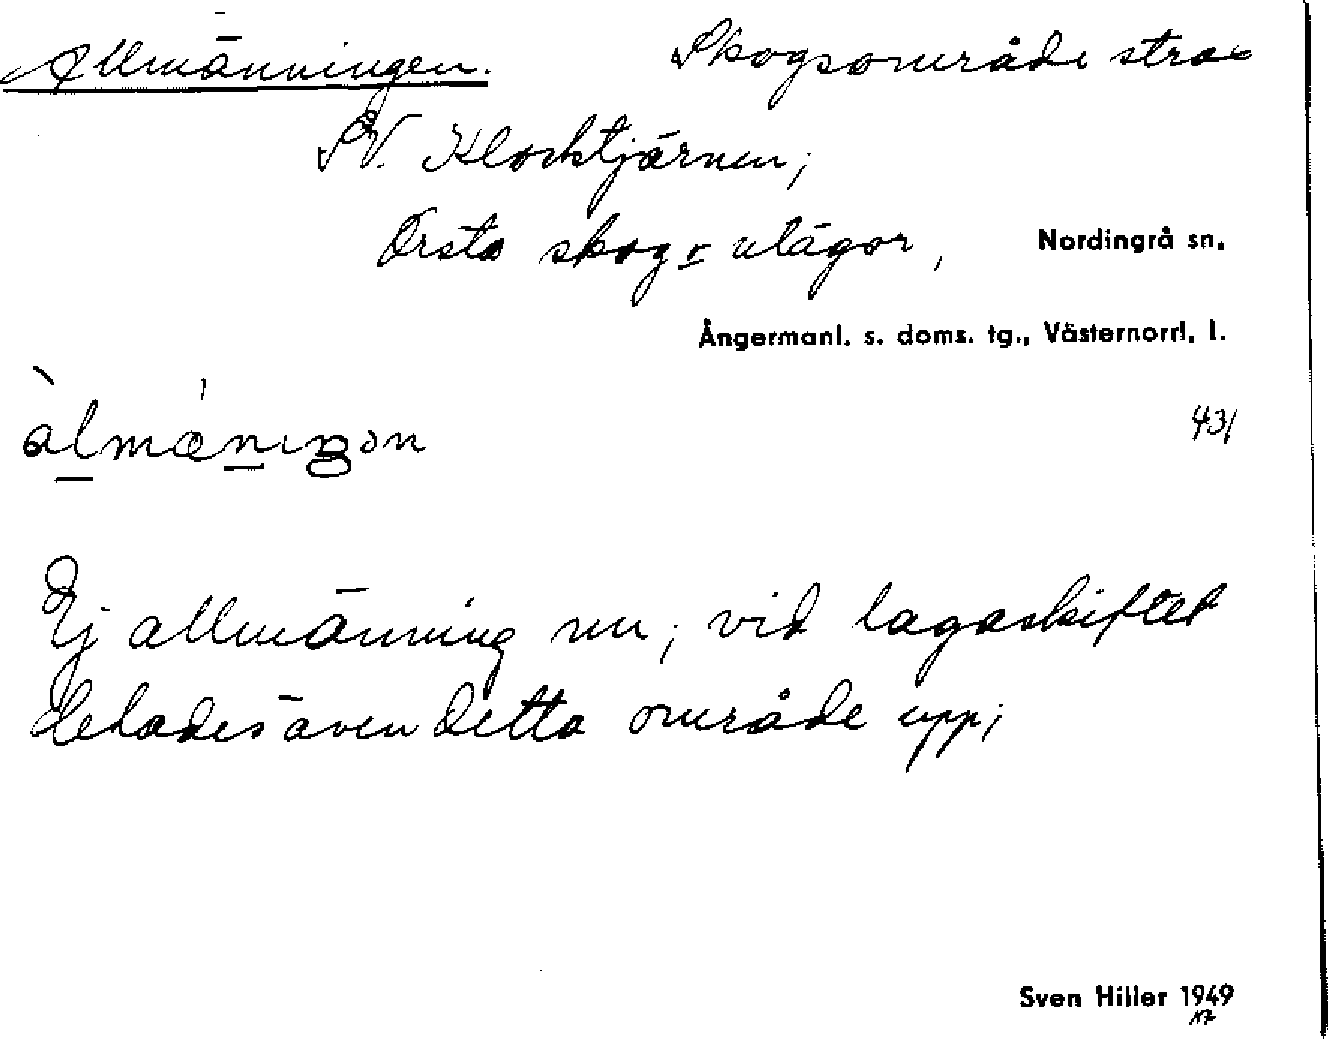 Allmänningen. Skogsområde strax
SV. Klocktjärnen;
Örsta skog - utägor, Nordingrå sn.
Ångermanl. s. doms. tg., Västernorrl. l.
431
Ej allmänning nu; vid lagaskiftet
delades även detta område upp;
Sven Hiller 1949